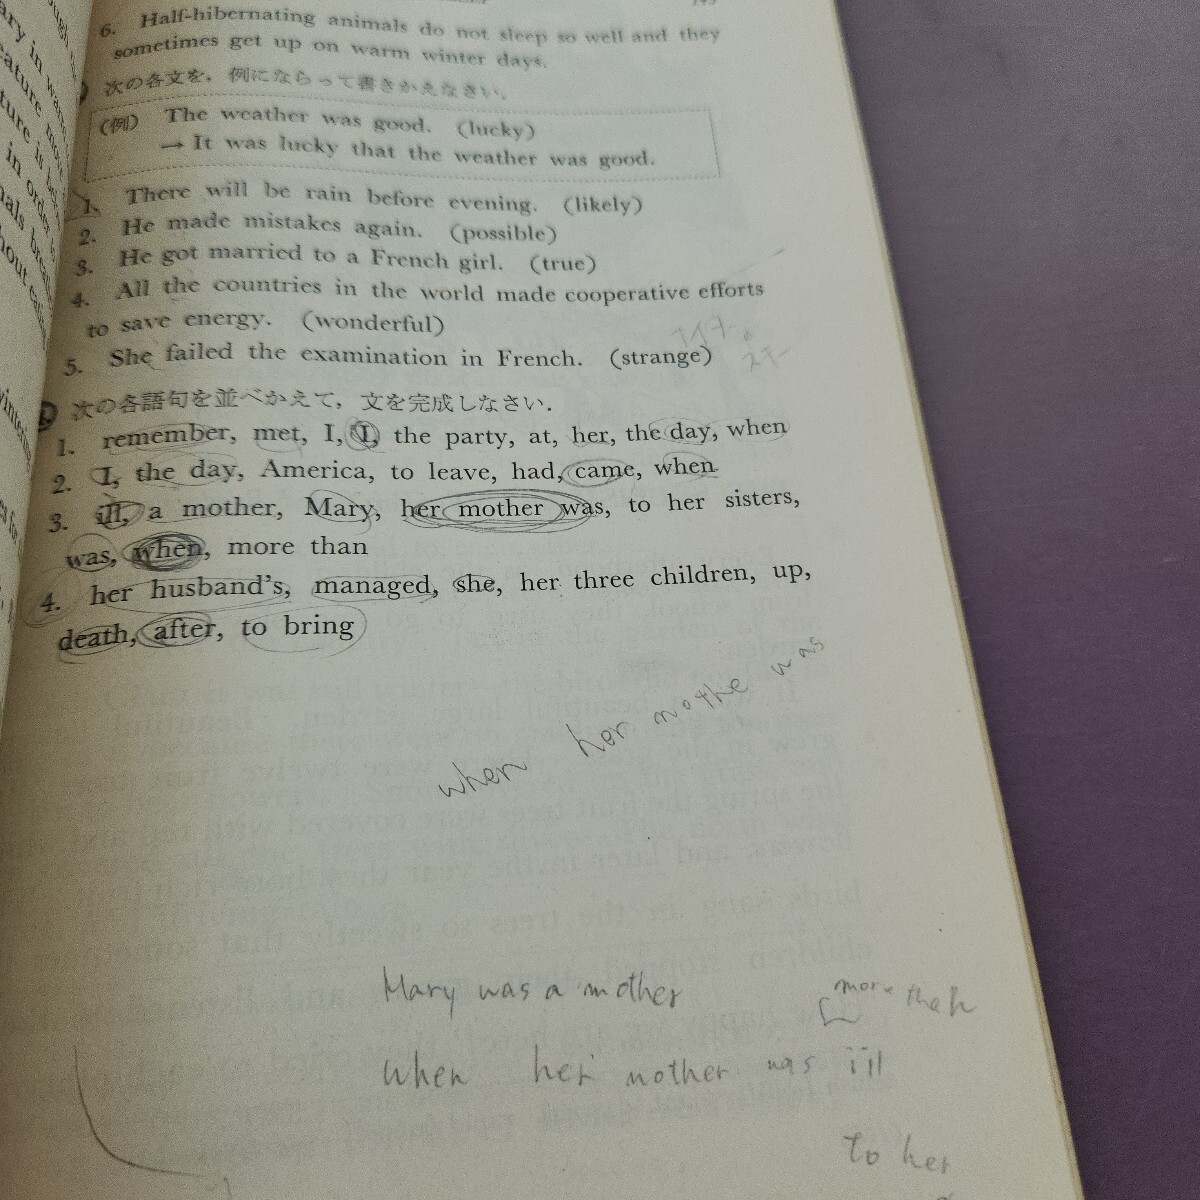 6. Half-hibernating animals do not sleep so well and they
sometimes get up on warm winter days.
次の各文を，例にならって書きかえなさい．
(例) The weather was good. (lucky)
→ It was lucky that the weather was good.
1. There will be rain before evening. (likely)
2. He made mistakes again. (possible)
3. He got married to a French girl. (true)
4. All the countries in the world made cooperative efforts
to save energy. (wonderful)
5. She failed the examination in French. (strange)
次の各語句を並べかえて，文を完成しなさい．
1. remember, met, I, I, the party, at, her, the day, when
2. I, the day, America, to leave, had, came, when
3. ill, a mother, Mary, her mother was, to her sisters,
was, when, more than
4. her husband's, managed, she, her three children, up,
death, after, to bring
when her mothe was
Mary was a mother
more than
when her mother was ill
to her